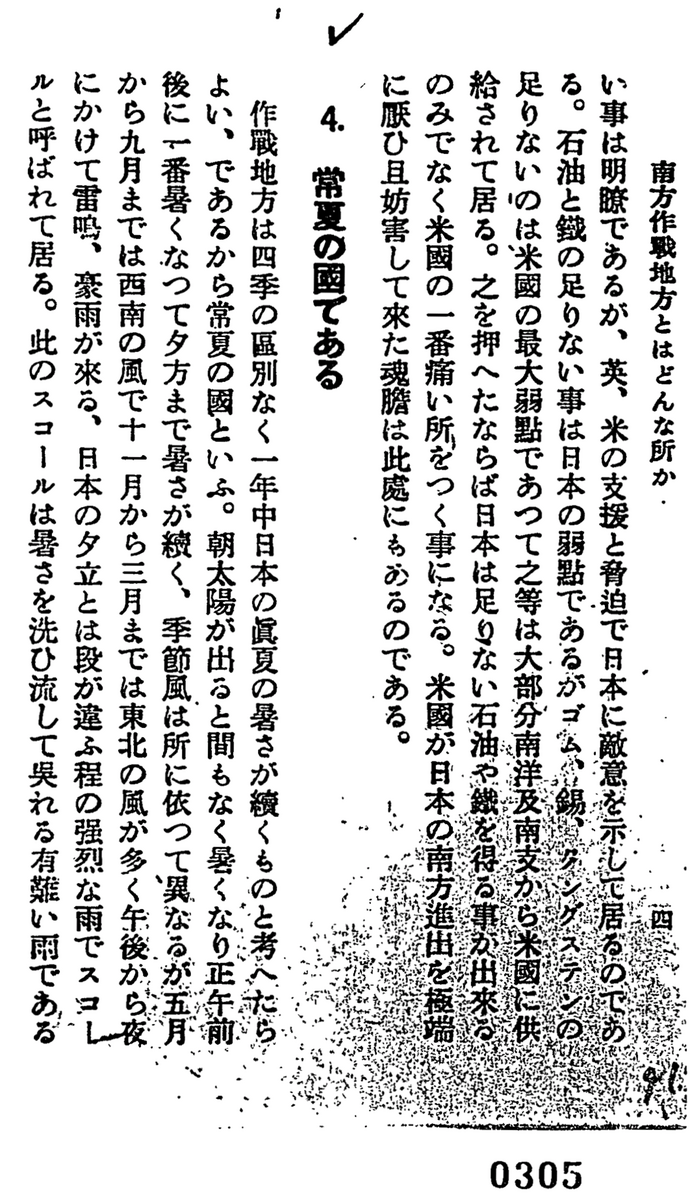 南方作戰地方とはどんな所か
四
い事は明瞭であるが、英、米の支援と脅迫で日本に敵意を示して居るのであ
る。石油と鐵の足りない事は日本の弱點であるがゴム、錫、タングステンの
足りないのは米國の最大弱點であつて之等は大部分南洋及南支から米國に供
給されて居る。之を押へたならば日本は足りない石油や鐵を得る事が出來る
のみでなく米國の一番痛い所をつく事になる。米國が日本の南方進出を極端
に厭ひ且妨害して來た魂膽は此處にもあるのである。
4. 常夏の國である
作戰地方は四季の區別なく一年中日本の眞夏の暑さが續くものと考へたら
よい、であるから常夏の國といふ。朝太陽が出ると間もなく暑くなり正午前
後に一番暑くなつて夕方まで暑さが續く、季節風は所に依つて異なるが五月
から九月までは西南の風で十一月から三月までは東北の風が多く午後から夜
にかけて雷鳴、豪雨が來る、日本の夕立とは段が違ふ程の强烈な雨でスコー
ルと呼ばれて居る。此のスコールは暑さを洗ひ流して吳れる有難い雨である
0305